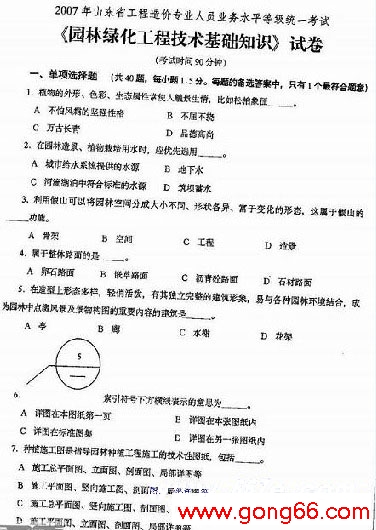 2007年山东省工程造价专业人员业务水平等级统一考试
《园林绿化工程技术基础知识》试卷
(考试时间90分钟)
一、单项选择题 (共40题，每小题1.5分。每题的备选答案中，只有1个最符合题意)
1. 植物的外形、色彩、生态属性常使人触景生情，比如松柏象征
A 不怕风霜的坚强性格 B 不屈不挠
C 万古长青 D 品德高尚
2. 在园林造景、植物栽培用水时，应优先选用
A 城市给水系统提供的水源 B 地下水
C 河湾湖泊中符合标准的水源 D 筑坝蓄水
3. 利用假山可以将园林空间分成大小不同、形状各异、富于变化的形态，这属于假山的
功能。
A 骨架 B 空间 C 工程 D 造景
4. 属于整体路面的是
A 卵石路面 B 嵌草路面 C 沥青砼路面 D 石材路面
5. 在造型上形态多样，轻俏活泼，有其独立完整的建筑形象，易与各种园林环境结合，成
为园林中点缀风景及景物构图的重要内容的建筑是
A 亭 B 廊 C 水榭 D 花架
5
6. 索引符号下方横线表示的意思为
A 详图在本图纸第一页 B 详图在本张图纸内
C 详图在标准图集 D 详图在另一张图纸内
7. 种植施工图是指导园林种植工程施工的技术性图纸，包括
A 施工总平面图、立面图、剖面图、局部详图等
B 施工平面图、竖向施工图、剖面图、
C 施工总平面图、竖向施工图、剖面图、
D 施工平面图、立面图、剖面图、局部详图等
www.gong66.com